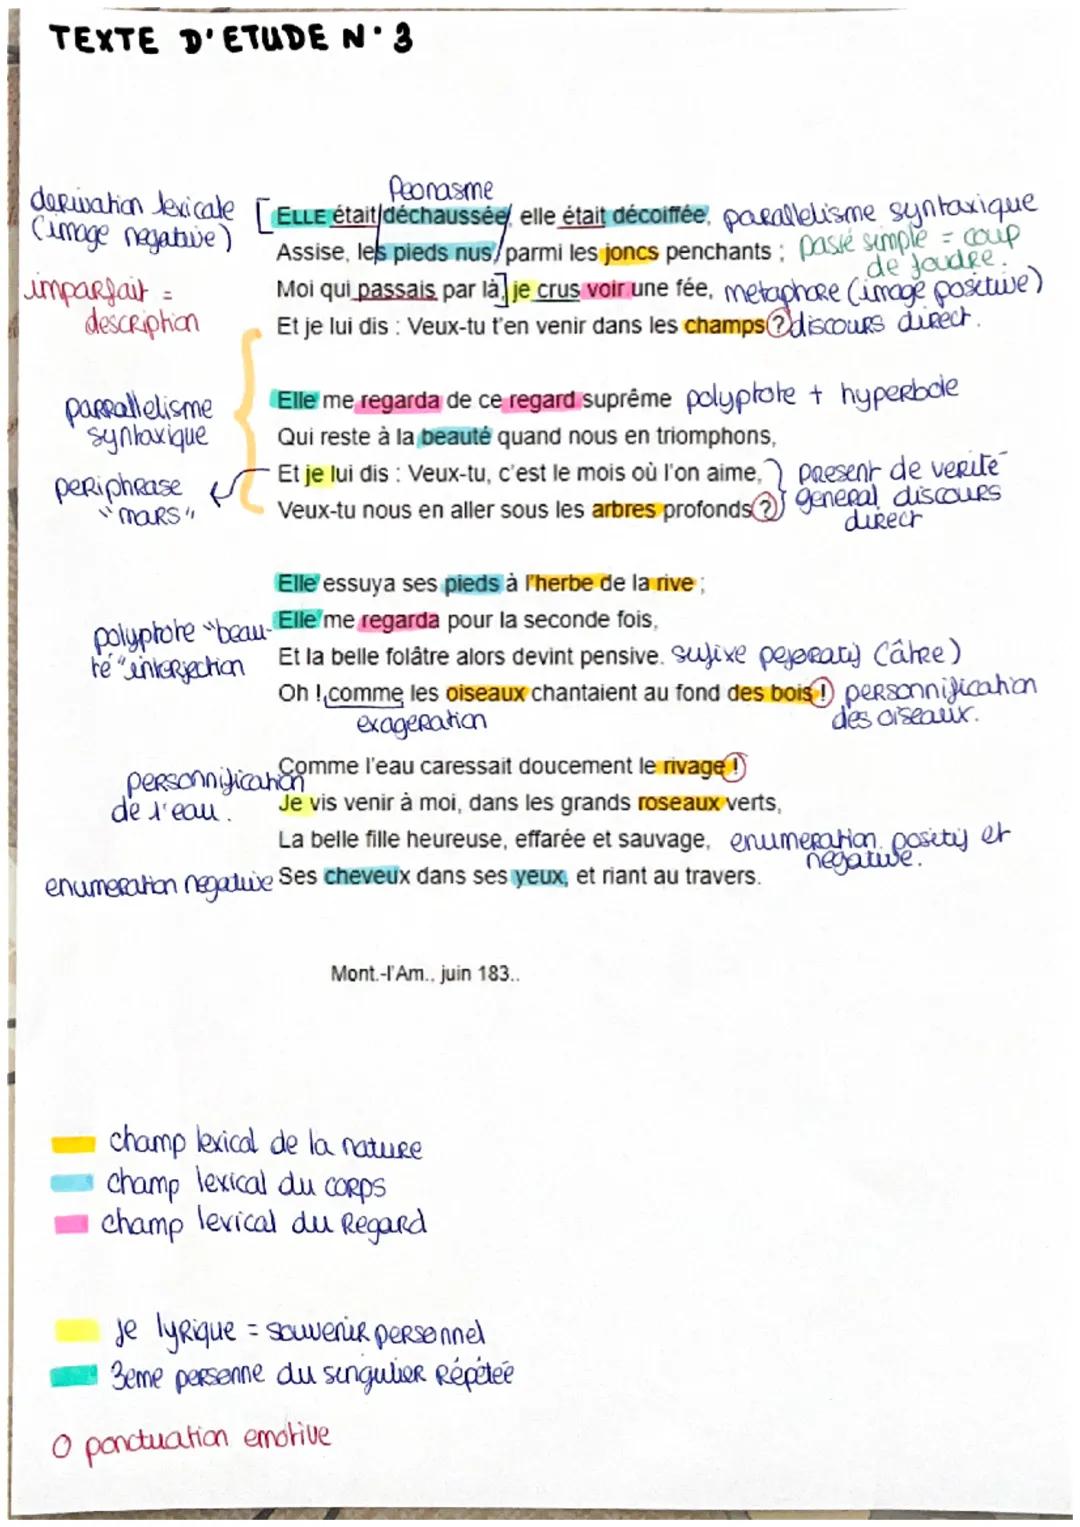 TEXTE D'ETUDE N° 3
Peonasme
derivation lexicale
(image negative)
ELLE était déchaussée, elle était décoiffée, parallelisme syntaxique
Assise, les pieds nus, parmi les joncs penchants ; passé simple = coup de foudre.
imparfait = description
Moi qui passais par là, je crus voir une fée, metaphore (image positive)
Et je lui dis : Veux-tu t'en venir dans les champs ? discours direct.
parrallelisme syntaxique
Elle me regarda de ce regard suprême polyptote + hyperbole
Qui reste à la beauté quand nous en triomphons,
periphrase "mars"
Et je lui dis : Veux-tu, c'est le mois où l'on aime,
Veux-tu nous en aller sous les arbres profonds ?
present de verité general discours direct
Elle essuya ses pieds à l'herbe de la rive ;
Elle me regarda pour la seconde fois,
polyptote "beauté" interjection
Et la belle folâtre alors devint pensive. sufixe pejoratif (âtre)
Oh ! comme les oiseaux chantaient au fond des bois ! personnification des oiseaux.
exageration
Comme l'eau caressait doucement le rivage !
personnification de l'eau.
Je vis venir à moi, dans les grands roseaux verts,
La belle fille heureuse, effarée et sauvage, enumeration positif et negative.
enumeration negative
Ses cheveux dans ses yeux, et riant au travers.
Mont.-l'Am., juin 183..
champ lexical de la nature
champ lexical du corps
champ lexical du Regard
je lyrique = souvenir personnel
3eme personne du singulier Répétée
O ponctuation emotive